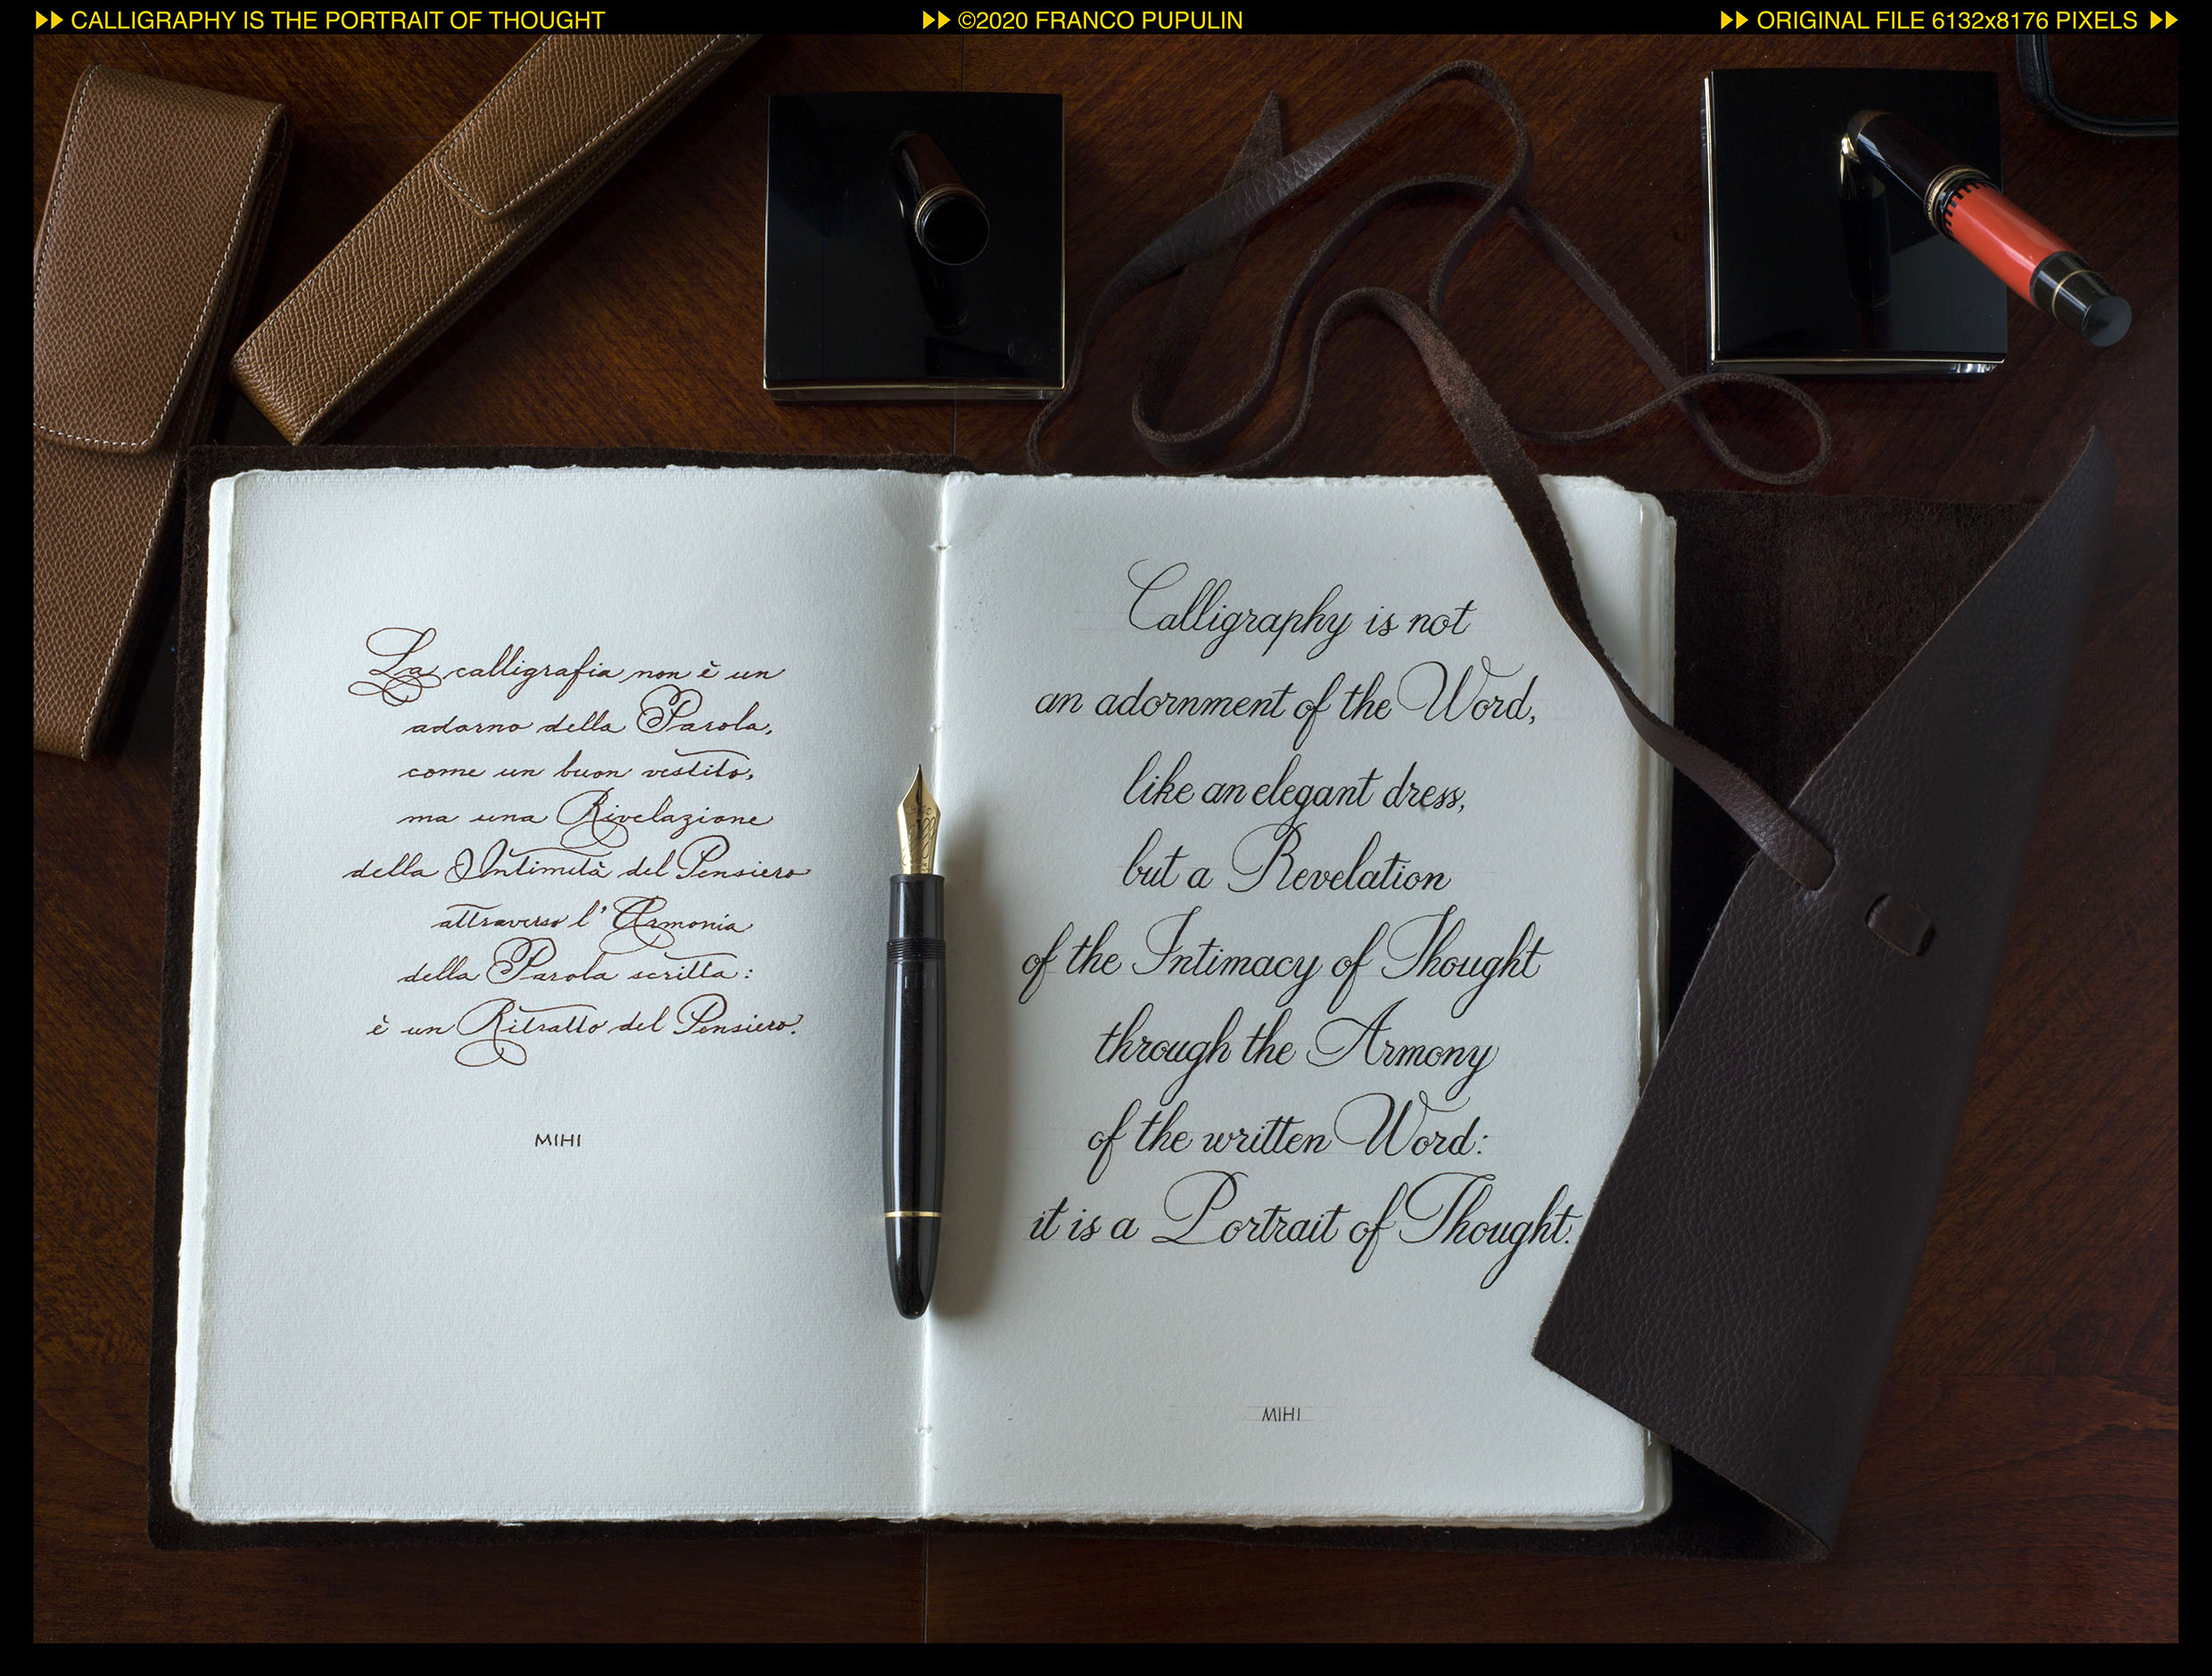 CALLIGRAPHY IS THE PORTRAIT OF THOUGHT
©2020 FRANCO PUPULIN
ORIGINAL FILE 6132x8176 PIXELS
La calligrafia non è un
adorno della Parola,
come un buon vestito,
ma una Rivelazione
della Intimità del Pensiero
attraverso l'Armonia
della Parola scritta:
è un Ritratto del Pensiero.
MIHI
Calligraphy is not
an adornment of the Word,
like an elegant dress,
but a Revelation
of the Intimacy of Thought
through the Armony
of the written Word:
it is a Portrait of Thought.
MIHI